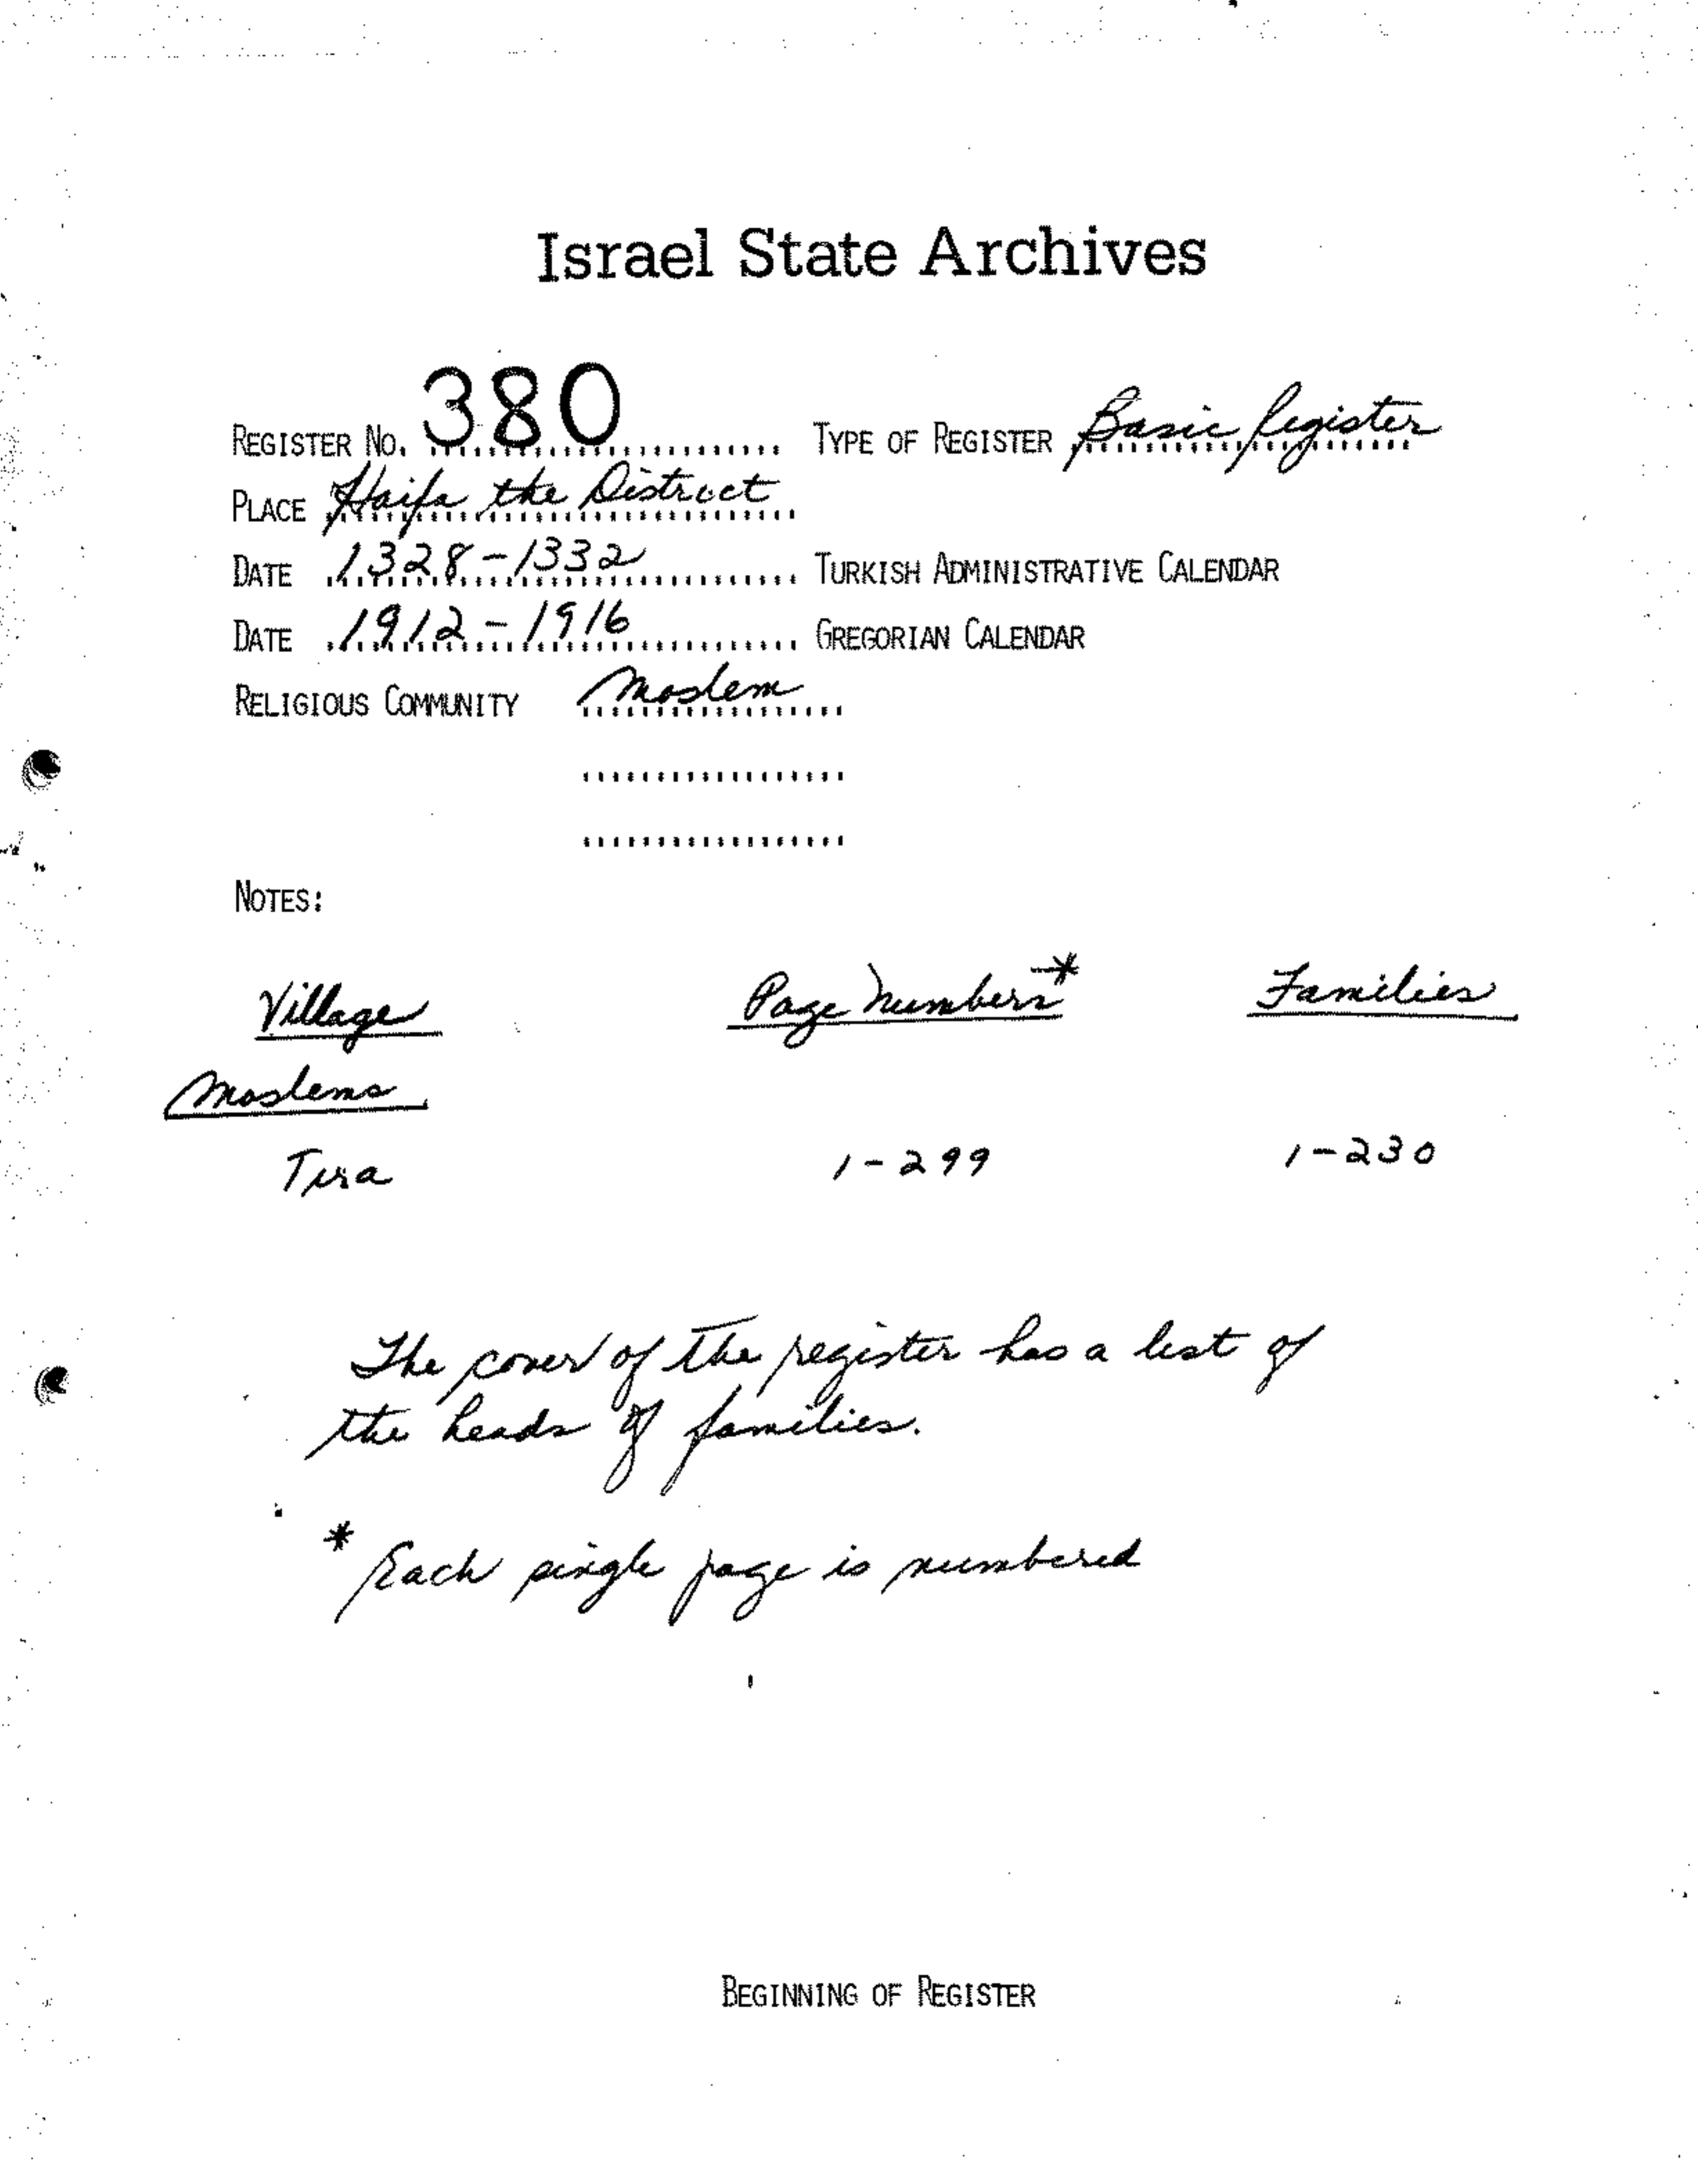 Israel State Archives
REGISTER NO. 380 TYPE OF REGISTER Basic Register
PLACE Haifa the District
DATE 1328-1332 TURKISH ADMINISTRATIVE CALENDAR
DATE 1912-1916 GREGORIAN CALENDAR
RELIGIOUS COMMUNITY Moslem
NOTES:
Village Page Numbers* Families
Moslems
Tira 1-299 1-230
The cover of the register has a list of
the heads of families.
* Each single page is numbered
BEGINNING OF REGISTER